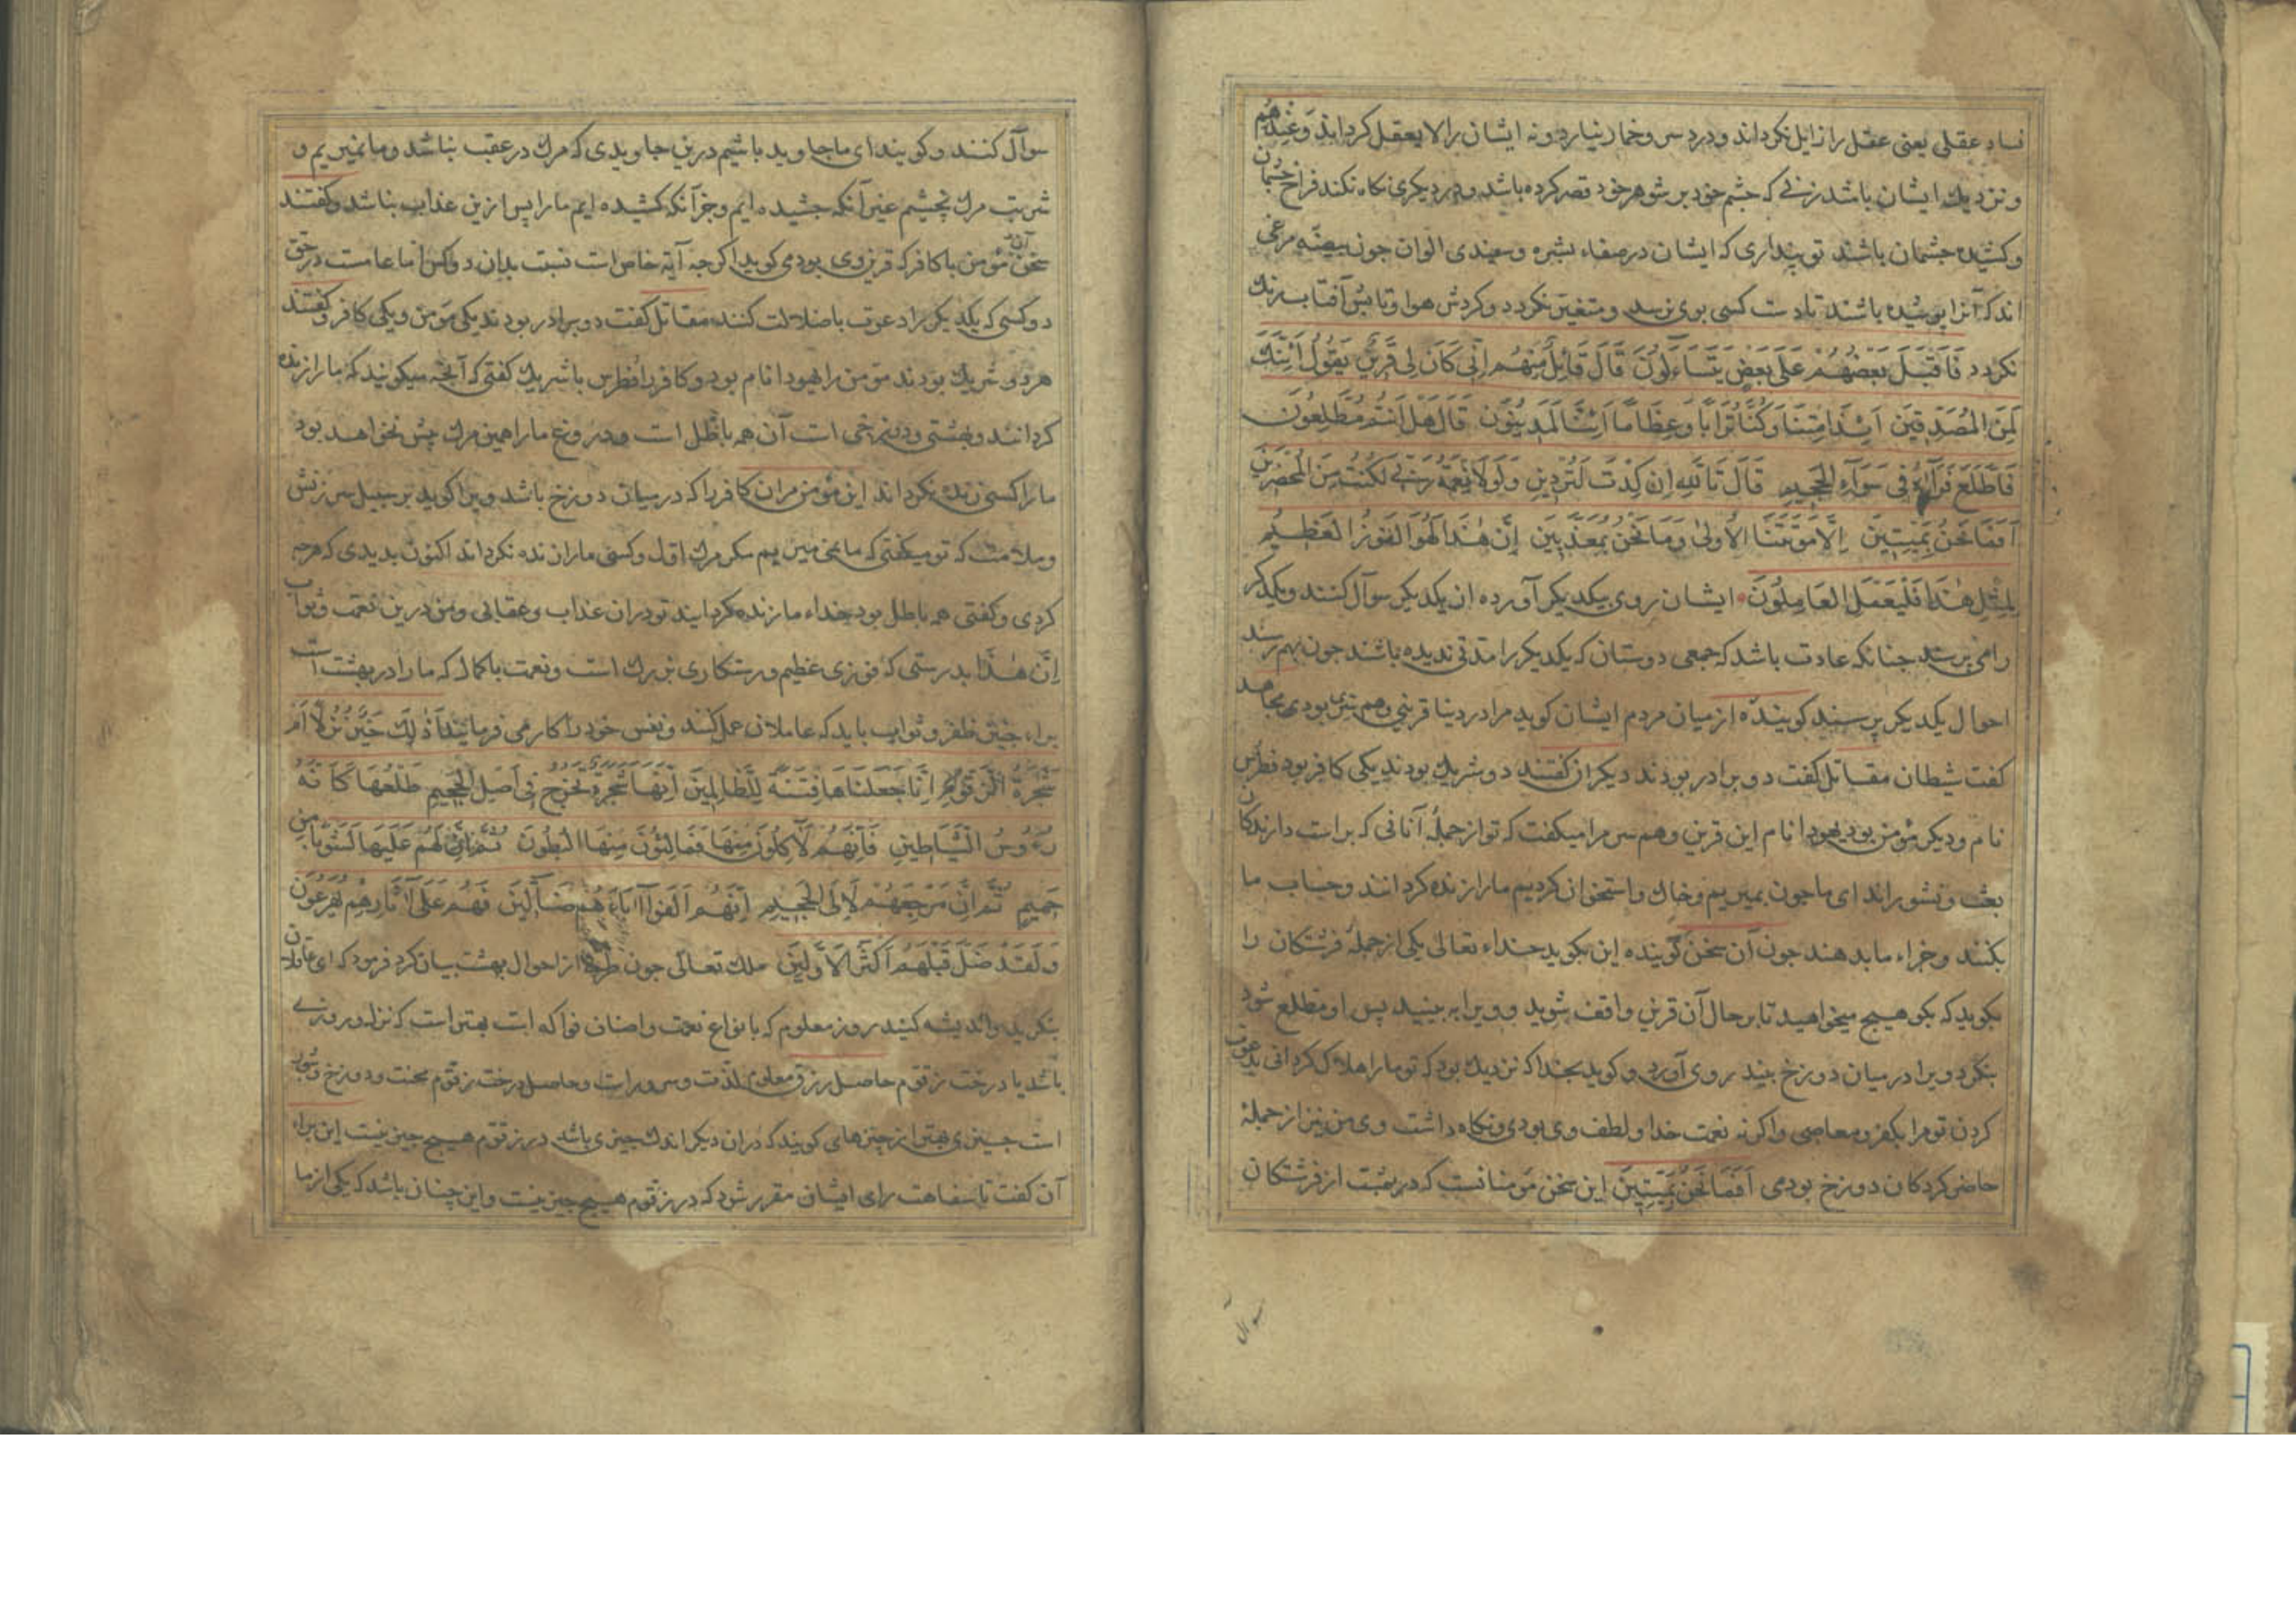 فساد عقلی یعنی عقل را زایل نکرداند و درد سر و خمار نیارد و نه ایشان را لا یعقل کرداند وَعِندَهُم
و نزدیك ایشان باشد زنی که چشم خود بر شوهر خود قصر کرده باشد و در دیکری نکاه نکند فراخ چشمان
و کشیده جشمان باشند تو پنداری که ایشان در صفاء بشره و سفیدی الوان جون بیضه مرغی
اند که آنرا پوشیده باشند تا دست کسی بوی نرسد و متغیر نکردد و کردش هوا و تابش آفتاب برنك
نکردد فَاَقْبَلَ بَعْضُهُمْ عَلَى بَعْضٍ يَتَسَاءَلُونَ قَالَ قَائِلٌ مِنْهُمْ اِنِّى كَانَ لِى قَرِينٌ يَقُولُ اَئِنَّكَ
لَمِنَ الْمُصَدِّقِينَ اَئِذَا مِتْنَا وَكُنَّا تُرَابًا وَعِظَامًا اَئِنَّا لَمَدِينُونَ قَالَ هَلْ اَنْتُمْ مُطَّلِعُونَ
فَاطَّلَعَ فَرَآهُ فِى سَوَآءِ الْجَحِيمِ قَالَ تَاللّٰهِ اِنْ كِدْتَ لَتُرْدِينِ وَلَوْلَا نِعْمَةُ رَبِّى لَكُنْتُ مِنَ الْمُحْضَرِينَ
اَفَمَا نَحْنُ بِمَيِّتِينَ اِلَّا مَوْتَتَنَا الْاُولٰى وَمَا نَحْنُ بِمُعَذَّبِينَ اِنَّ هٰذَا لَهُوَ الْفَوْزُ الْعَظِيمُ
لِمِثْلِ هٰذَا فَلْيَعْمَلِ الْعَامِلُونَ ایشان روی بیکدیکر آورده از یکدیکر سوآل کنند و یکدیکر
را می پرسند جنانکه عادت باشد که جمعی دوستان که یکدیکر را مدتی ندیده باشند جون بهم رسند
احوال یکدیکر پرسند کوینده از میان مردم ایشان کوید مرا در دنیا قرینی و هم نشین بودی مجاهد
کفت شیطان مقاتل کفت دو برادر بودند دیکران کفتند دو شریك بودند یکی کافر بود فطرس
نام و دیکر مؤمن بود یهودا نام این قرین و هم سر مرا میکفت که تو از جملۀ آنانی که براست دارندکان
بعث و نشور اند ای ما جون بمیریم و خاك و استخوان کردیم ما را زنده کردانند و حساب ما
بکنند و جزاء ما بدهند جون آن سخن کوینده این بکوید خداء تعالی یکی از جملۀ فرشتکان را
بکوید که بکو هیچ میخواهید تا بر حال آن قرین واقف شوید و ویرا به بینید پس او مطلع شود
بنکرد ویرا در میان دوزخ بیند روی آورد و کوید بخدا که نزدیك بود که تو ما را هلاك کردانی بدعوت
کردن تو مرا بکفر و معاصی و اکرنه نعمت خدا و لطف وی بودی و نکاه داشت وی من نیز از جملۀ
حاضر کردکان دوزخ بودمی اَفَمَا نَحْنُ بِمَيِّتِينَ این سخن مؤمنانست که در بهشت از فرشتکان
سوآل
سوآل کنند و کویند ای ما جاوید باشیم درین جاویدی که مرك در عقب نباشد و ما نمیریم و
شربت مرك نچشیم غیر آنکه چشیده ایم و جز آنکه کشیده ایم ما را پس ازین عذاب نباشد و کفتند
سخن آن مؤمن با کافر که قرین وی بود می کوید اکر جه آیه خاص است نسبت بدان دو کس اما عامست در حق
دو کسی که یکدیکر را دعوت باضلالت کنند مقاتل کفت دو برادر بودند یکی مؤمن و یکی کافر و کفتند
هر دو شریك بودند مؤمن را یهودا نام بود و کافر را فطرس با شریك کفتی که آنچه میکویند که ما را زنده
کردانند و بهشتی و دوزخی است آن همه باطل است و دروغ ما را همین مرك پیش نخواهد بود
ما را کسی زنده نکرداند این مؤمن مران کافر را که در میان دوزخ باشد ویرا کوید بر سبیل سرزنش
و ملامت که تو میکفتی که ما نمی میریم مکر مرك اول و کسی ما را زنده نکرداند اکنون بدیدی که هرجه
کردی و کفتی همه باطل بود خداء ما را زنده کردانید تو در ان عذاب و عقابی و من درین نعمت و ثواب
اِنَّ هٰذَا بدرستی که فوزی عظیم و رستکاری بزرك است و نعمت با کمال که ما را در بهشت است
براء جنین ظفر و ثواب باید که عاملان عمل کنند و نفس خود را کار می فرمایند اَذٰلِكَ خَيْرٌ نُزُلًا اَمْ
شَجَرَةُ الزَّقُّومِ اِنَّا جَعَلْنَاهَا فِتْنَةً لِلظَّالِمِينَ اِنَّهَا شَجَرَةٌ تَخْرُجُ فِى اَصْلِ الْجَحِيمِ طَلْعُهَا كَاَنَّهُ
رُءُوسُ الشَّيَاطِينِ فَاِنَّهُمْ لَآكِلُونَ مِنْهَا فَمَالِئُونَ مِنْهَا الْبُطُونَ ثُمَّ اِنَّ لَهُمْ عَلَيْهَا لَشَوْبًا مِنْ
حَمِيمٍ ثُمَّ اِنَّ مَرْجِعَهُمْ لَاِلَى الْجَحِيمِ اِنَّهُمْ اَلْفَوْا آبَاءَهُمْ ضَآلِّينَ فَهُمْ عَلَى آثَارِهِمْ يُهْرَعُونَ
وَلَقَدْ ضَلَّ قَبْلَهُمْ اَكْثَرُ الْاَوَّلِينَ ملك تعالی جون طرفی از احوال بهشت بیان کرد فرمود که ای عاقلان
بنکرید و اندیشه کنید روز معلوم که با نواع نعمت و اصناف فواکه است بهتر است که نزل و روزی
باشد یا درخت زقوم حاصل رزق معلوم لذت و سرور است و حاصل درخت زقوم محنت و دوزخ و شرور
است چیزی بهتر از چیزهای کویند که در ان دیکر اندك چیزی باشد در زقوم هیچ چیز نیست این براء
آن کفت تا سفاهت رای ایشان مقرر شود که در زقوم هیچ چیز نیست و این چنان باشد که یکی از ما